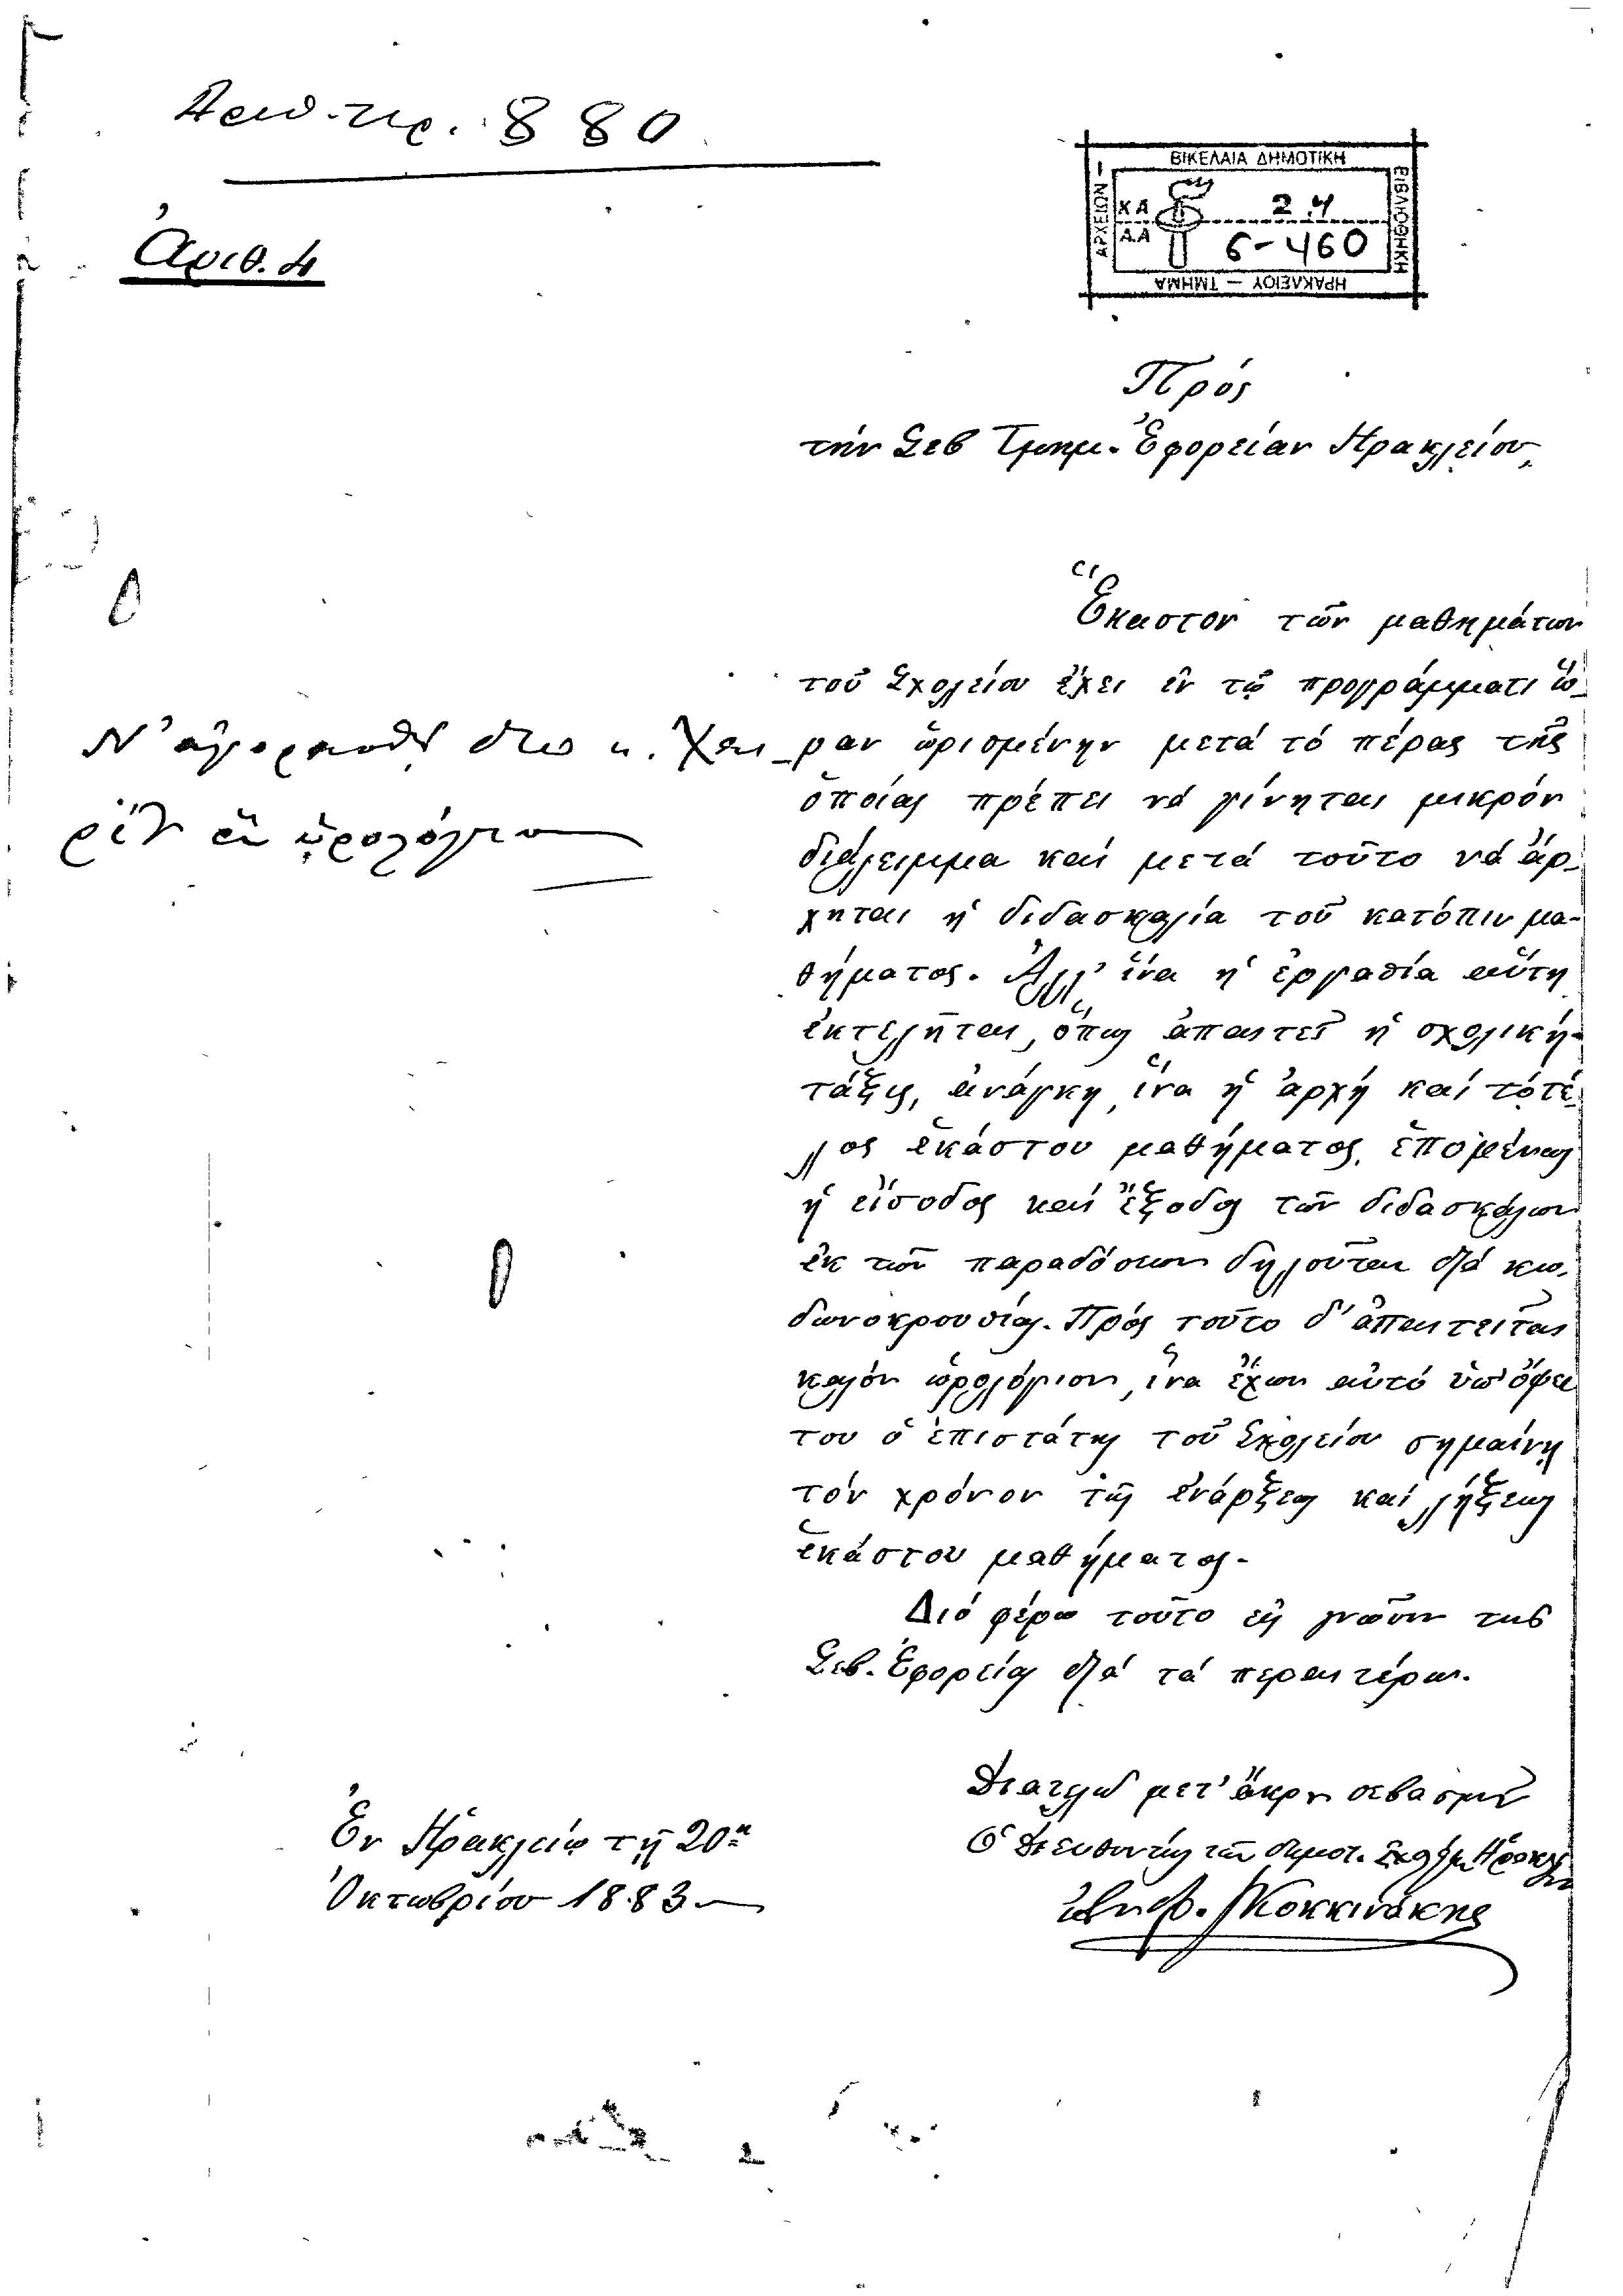 Αριθ. πρ. 880
Ἀριθ. 4
ΒΙΚΕΛΑΙΑ ΔΗΜΟΤΙΚΗ
ΒΙΒΛΙΟΘΗΚΗ
ΗΡΑΚΛΕΙΟΥ — ΤΜΗΜΑ
ΑΡΧΕΙΩΝ —
ΧΑ 24
Α.Α 6-460
Πρός
τήν Σεβ Τμημ. Ἐφορείαν Ηρακλείου,
Ἕκαστον τῶν μαθημάτων
τοῦ Σχολείου ἔχει ἐν τῷ προγράμματι ὥ-
ραν ὡρισμένην μετά τό πέρας τῆς
ὁποίας πρέπει νά γίνηται μικρόν
διάλειμμα καί μετά τοῦτο νά ἄρ-
χηται ἡ διδασκαλία τοῦ κατόπιν μα-
θήματος. Ἀλλ' ἵνα ἡ ἐργασία αὕτη
ἐκτελῆται, ὅπως ἀπαιτεῖ ἡ σχολική
τάξις, ἀνάγκη, ἵνα ἡ ἀρχή καί τό τέ-
λος ἑκάστου μαθήματος, ἑπομένως
ἡ εἴσοδος καί ἔξοδος τῶν διδασκάλων
ἐκ τῶν παραδόσεων δηλοῦται διά κω-
δωνοκρουσίας. Πρός τοῦτο δ' ἀπαιτεῖται
καλόν ὡρολόγιον, ἵνα ἔχων αὐτό ὑπ' ὄψει
του ὁ ἐπιστάτης τοῦ Σχολείου σημαίνῃ
τόν χρόνον τῆς ἐνάρξεως καί λήξεως
ἑκάστου μαθήματος.
Διό φέρω τοῦτο εἰς γνῶσιν της
Σεβ. Ἐφορείας διά τά περαιτέρω.
Ν' ἀγορασθῇ ἀπό κ. Χαι
ρέτ ἓν ὡρολόγιον
Διατελῶ μετ' ἄκρου σεβασμοῦ
Ὁ Διευθυντής τῶν δημοτ. Σχολ.
Κοκκινάκης
Ἐν Ἡρακλείῳ τῇ 20ῃ
Ὀκτωβρίου 1883